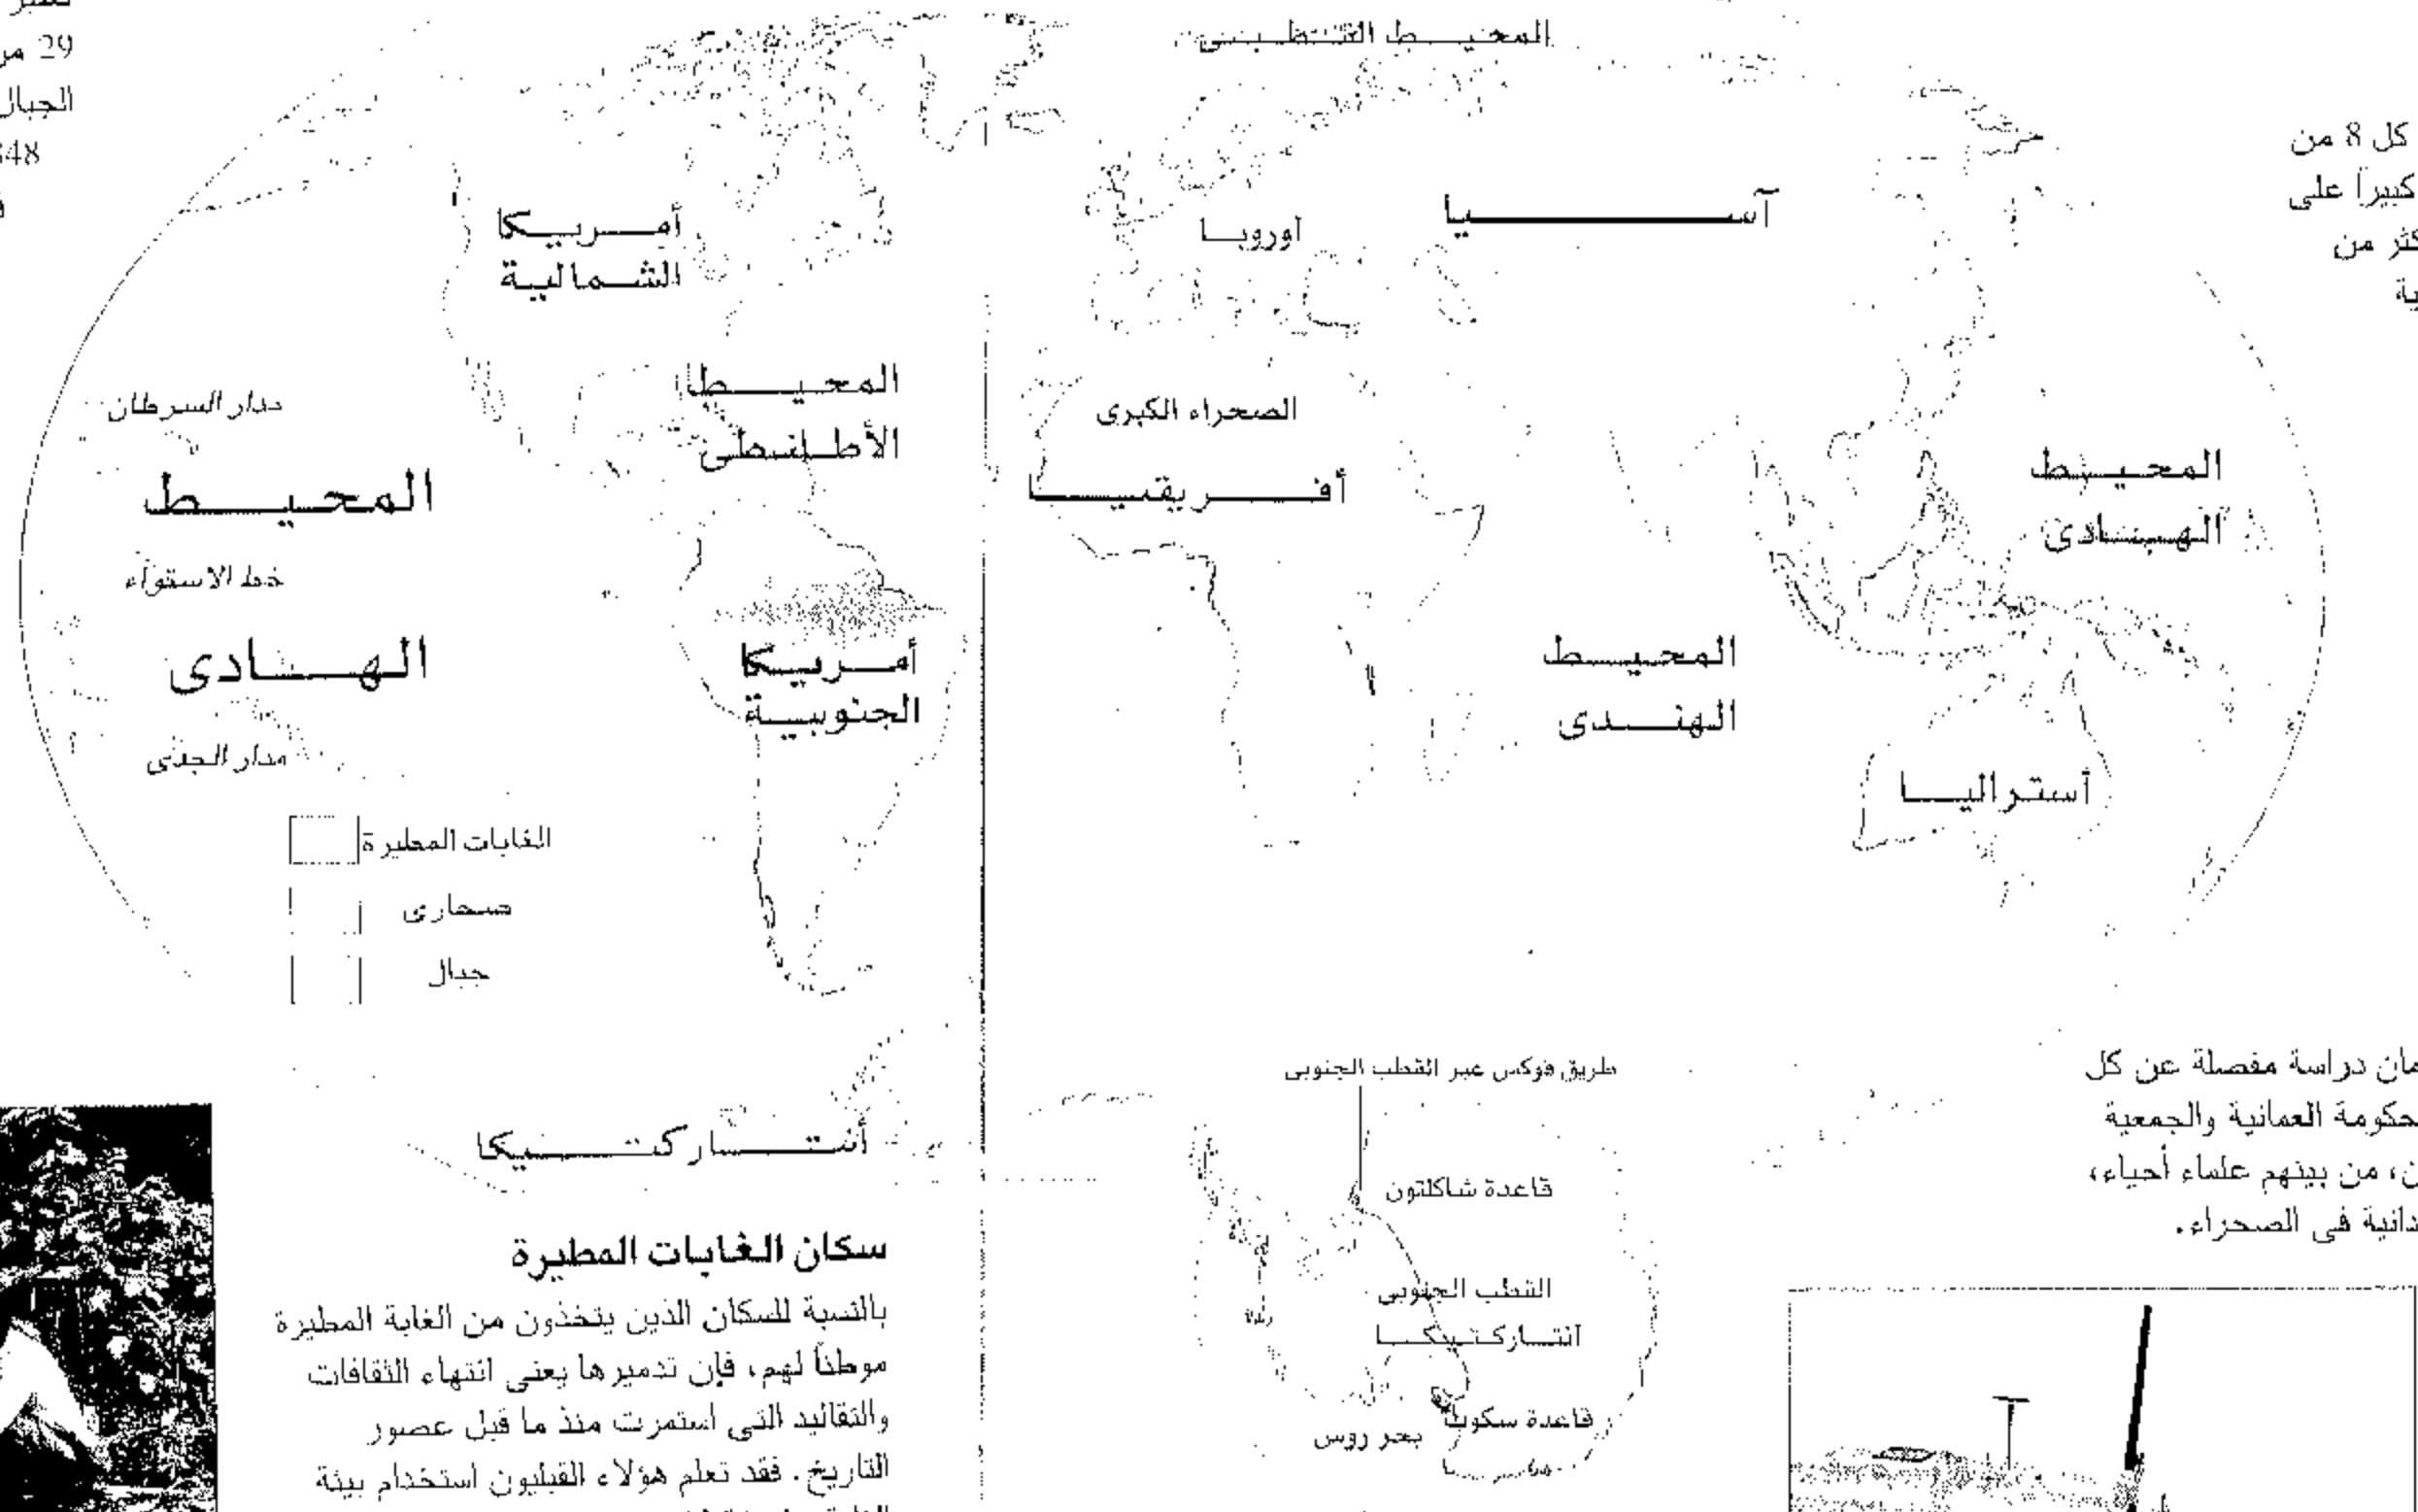 29 من
الجبال
كل 8 من
كبيراً على
كثر من
المحيط القطبى
أمريكا
الشمالية
اوروبا
آسيا
المحيط
الأطلنطى
الصحراء الكبرى
أفريقيا
مدار السرطان
المحيط
خط الاستواء
الهادى
مدار الجدى
أمريكا
الجنوبية
المحيط
الهندى
المحيط
الهادى
أستراليا
الغابات المطيرة
صحارى
جبال
أنتاركتيكا
طريق فوكس عبر القطب الجنوبى
قاعدة شاكلتون
القطب الجنوبى
انتاركتيكا
قاعدة سكوت
بحر روس
مان دراسة مفصلة عن كل
حكومة العمانية والجمعية
ن، من بينهم علماء أحياء،
دانية فى الصحراء.
سكان الغابات المطيرة
بالنسبة للسكان الذين يتخذون من الغابة المطيرة
موطناً لهم، فإن تدميرها يعنى انتهاء الثقافات
والتقاليد التى استمرت منذ ما قبل عصور
التاريخ. فقد تعلم هؤلاء القبليون استخدام بيئة